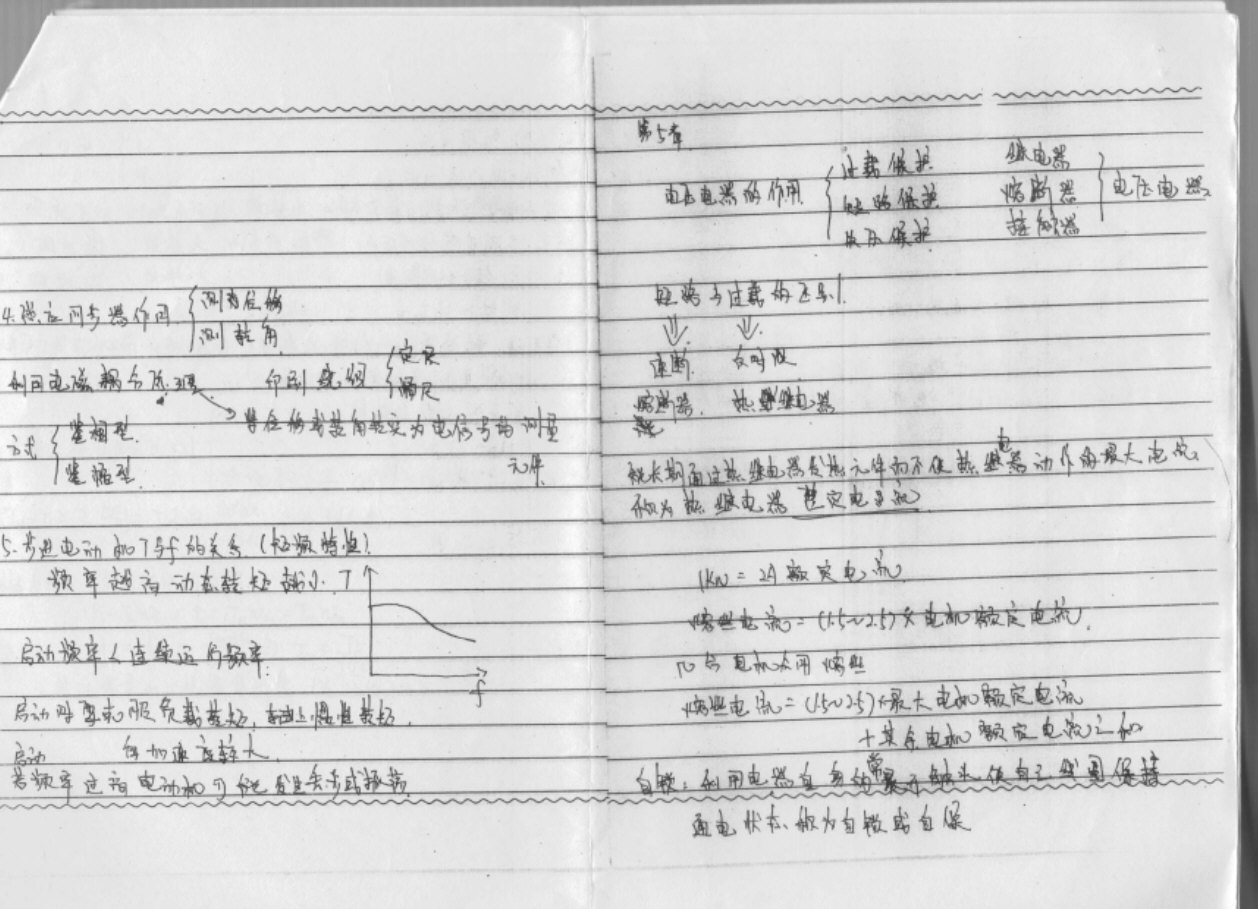 4.感应同步器作用 { 测角位移
测转角
利用电磁耦合原理 印刷绕组 { 定尺
滑尺
将位移或转角转变为电信号的测量
元件
方式 { 鉴相型
鉴幅型
5.步进电动机T与f的关系(矩频特性).
频率越高动态转矩越小. T
f
启动频率<连续运行频率.
启动时要克服负载转矩,轴上惯性转矩.
启动 角加速度较大.
若频率过高电动机可能发生丢步或振荡.
第5章
电压电器的作用 { 过载保护 继电器
短路保护 熔断器 } 电压电器
失压保护 接触器
短路与过载的区别.
⇓ ⇓
速断 反时限
熔断器. 热继电器
长期通过热继电器发热元件而不使热继电器动作的最大电流,
称为热继电器整定电流
1KW = 2A额定电流
熔丝电流=(1.5~2.5)×电机额定电流.
几台电机共用熔丝
熔丝电流=(1.5~2.5)×最大电机额定电流
+其余电机额定电流之和
自锁:利用电器自身的常开触头使自己线圈保持
通电状态,称为自锁或自保